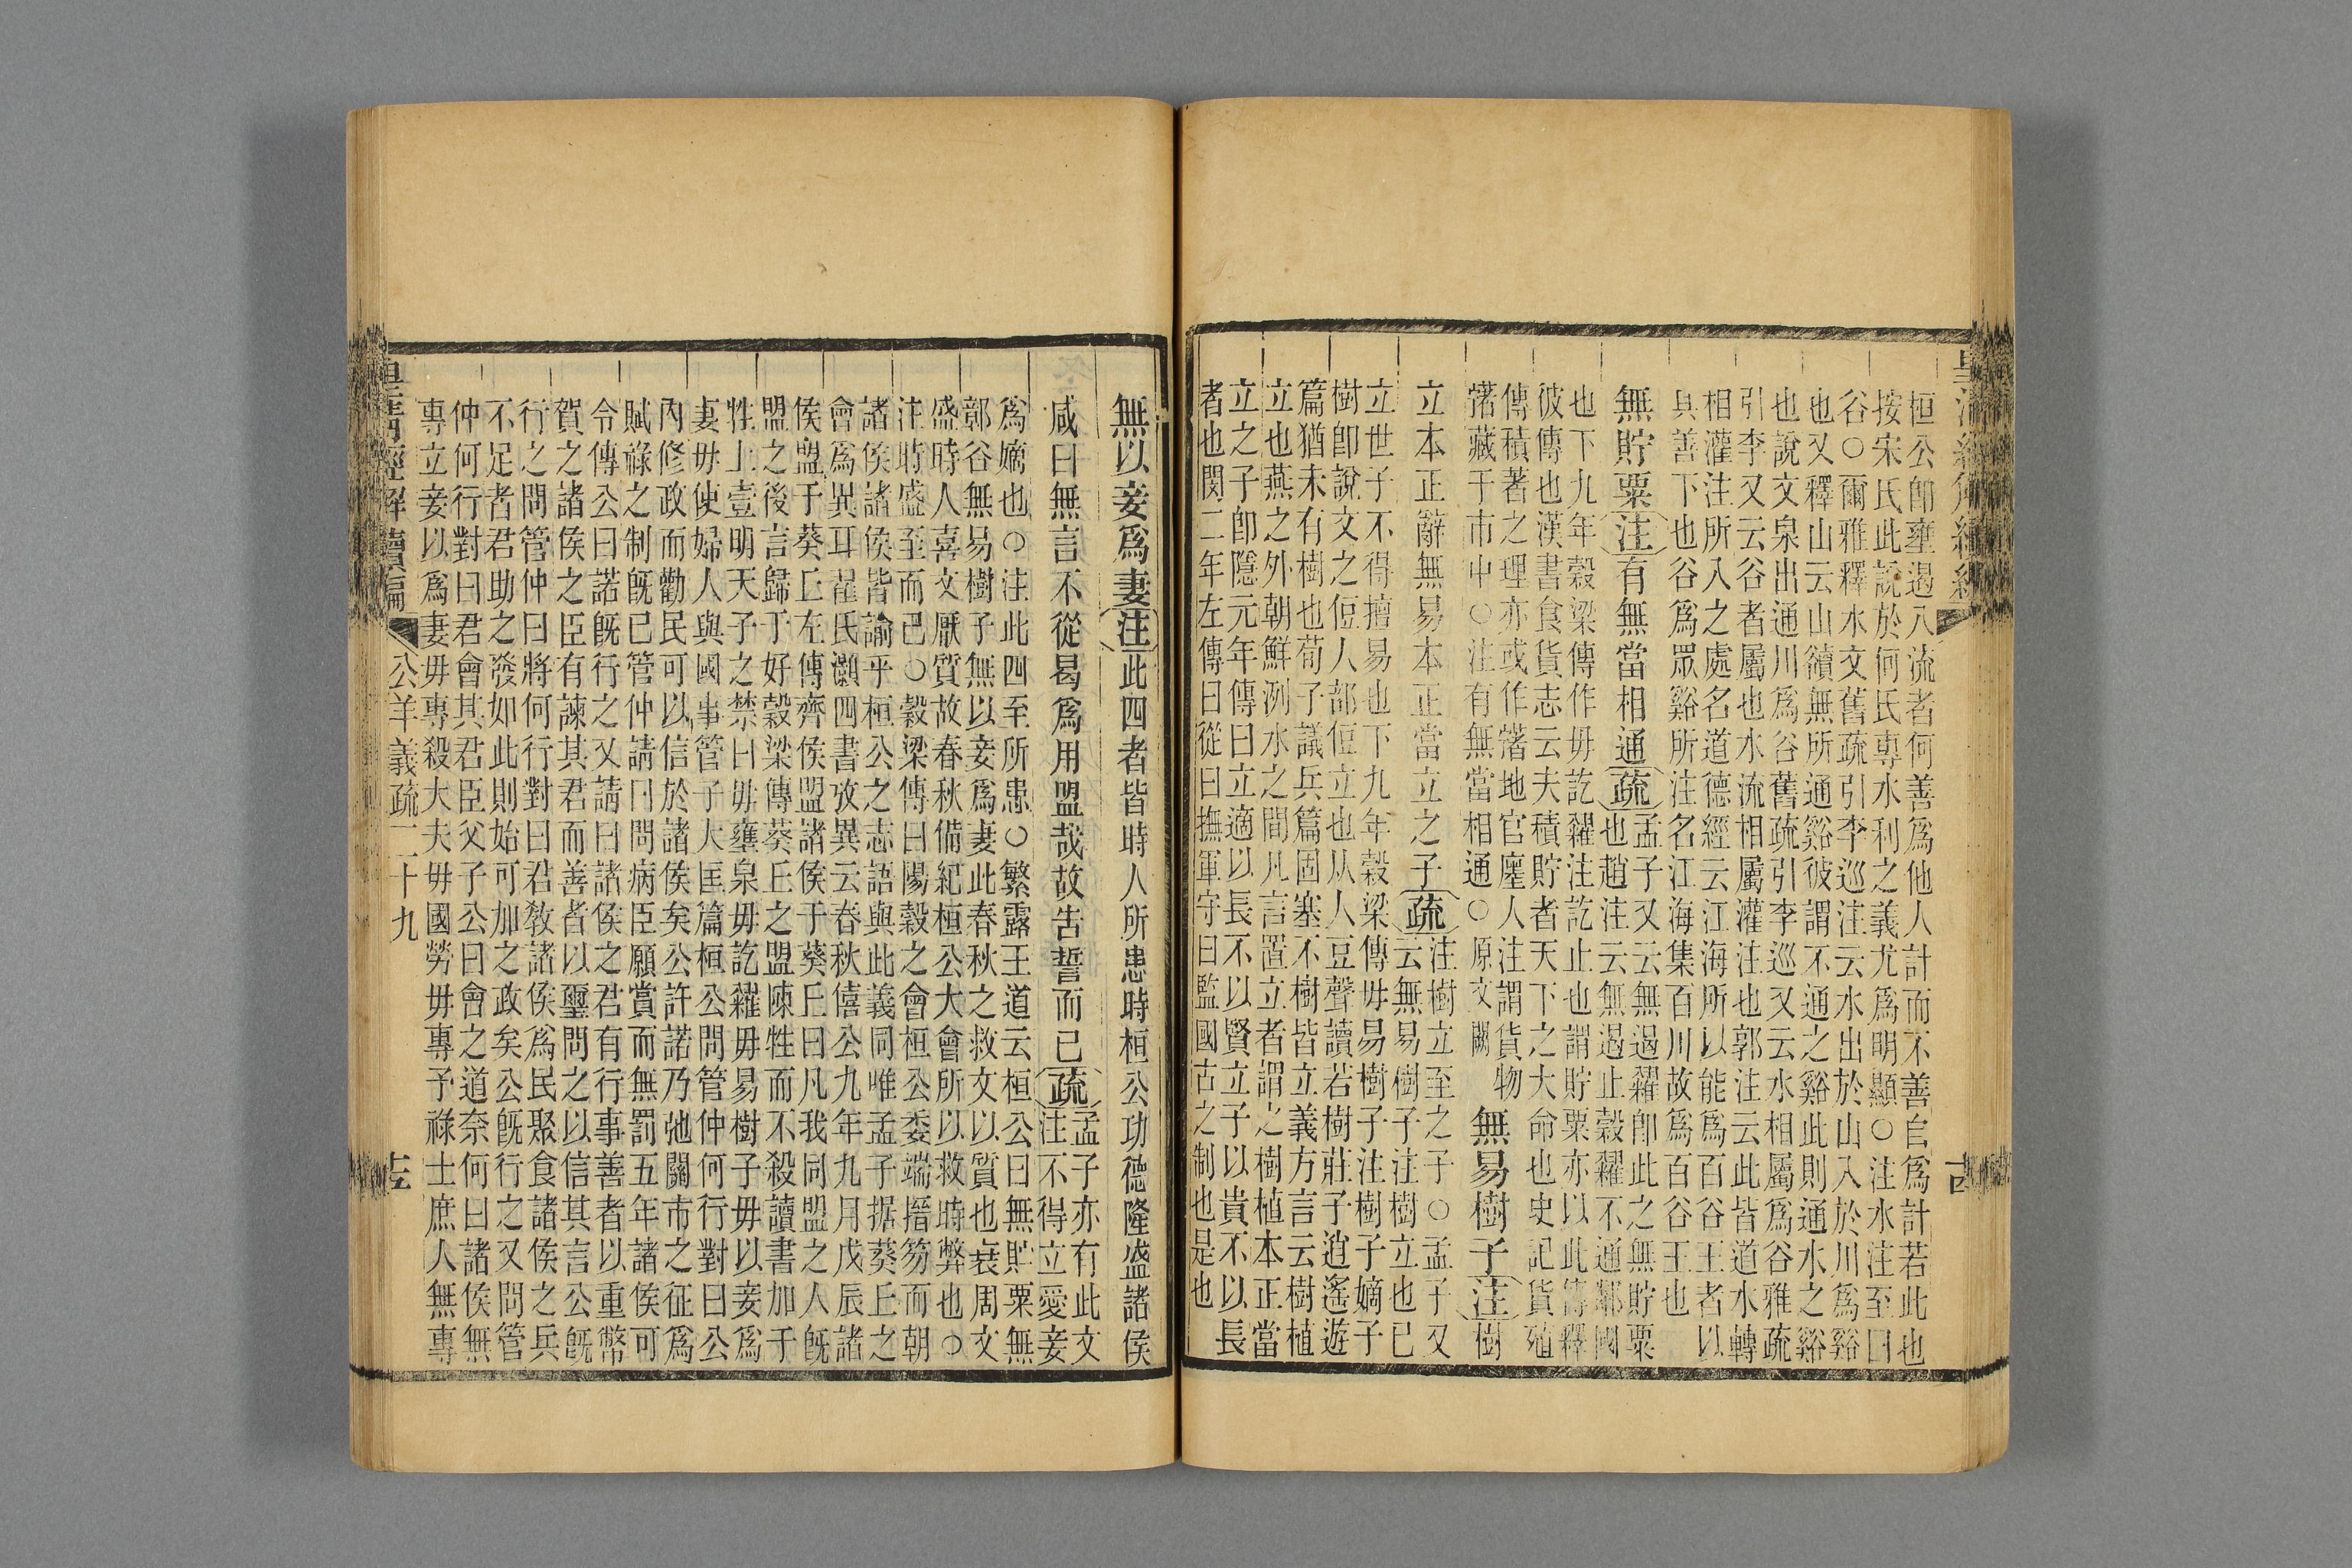 桓公卽壅遏入流者何善爲他人計而不善自爲計若此也
按宋氏此說於何氏專水利之義尤爲明顯○注水注至曰
谷○爾雅釋水文舊疏引李巡注云水出於山入於川爲谿
也又釋山云山䝳無所通谿彼謂不通之谿此則通水之谿
也說文泉出通川爲谷舊疏引李巡又云水相屬爲谷雅疏
引李又云谷者屬也水流相屬灌注也郭注云此皆道水轉
相灌注所入之處名道德經云江海所以能爲百谷王者以
其善下也谷爲眾谿所注名江海集百川故爲百谷王也
無貯粟注有無當相通疏孟子又云無遏糴卽此之無貯粟
也趙注云無遏止穀糴不通鄰國
也下九年穀梁傳作毋訖糴注訖止也謂貯粟亦以此傳釋
彼傳也漢書食貨志云夫積貯者天下之大命也史記貨殖
傳積著之理亦或作䇡地官廛人注謂貨物
䇡藏于市中○注有無當相通○原文闕
無易樹子注樹
立本正辭無易本正當立之子疏注樹立至之子○孟子又
云無易樹子注樹立也已
立世子不得擅易也下九年穀梁傳毋易樹子注樹子嫡子
樹卽說文之侸人部侸立也从人豆聲讀若樹莊子逍遙遊
篇猶未有樹也荀子議兵篇固塞不樹皆立義方言云樹植
立也燕之外朝鮮洌水之間凡言置立者謂之樹植本正當
立之子卽隱元年傳曰立適以長不以賢立子以貴不以長
者也閔二年左傳曰從曰撫軍守曰監國古之制也是也
無以妾爲妻注此四者皆時人所患時桓公功德隆盛諸侯
咸曰無言不從曷爲用盟哉故告誓而已疏孟子亦有此文
注不得立愛妾
爲嫡也○注此四至所患○繁露王道云桓公曰無貯粟無
鄣谷無易樹子無以妾爲妻此春秋之救文以質也衰周文
盛時人喜文厭質故春秋備紀桓公大會所以救時弊也○
注時盛至而已○穀梁傳曰陽穀之會桓公委端搢笏而朝
諸侯諸侯皆諭乎桓公之志語與此義同唯孟子据葵丘之
會爲異耳翟氏灝四書攷異云春秋僖公九年九月戊辰諸
侯盟于葵丘左傳齊侯盟諸侯于葵丘曰凡我同盟之人旣
盟之後言歸于好穀梁傳葵丘之盟陳牲而不殺讀書加于
牲上壹明天子之禁曰毋壅泉毋訖糴毋易樹子毋以妾爲
妻毋使婦人與國事管子大匡篇桓公問管仲何行對曰公
內修政而勸民可以信於諸侯矣公許諾乃弛關市之征爲
賦祿之制旣已管仲請曰問病臣願賞而無罰五年諸侯可
令傅公曰諾旣行之又請曰諸侯之君有行事善者以重幣
賀之諸侯之臣有諫其君而善者以璽問之以信其言公旣
行之問管仲曰將何行對曰君敎諸侯爲民聚食諸侯之兵
不足者君助之發如此則始可加之政矣公旣行之又問管
仲何行對曰君會其君臣父子公曰會之道奈何曰諸侯無
專立妾以爲妻毋專殺大夫毋國勞毋專予祿士庶人無專
皇清經解續編
公羊義疏二十九